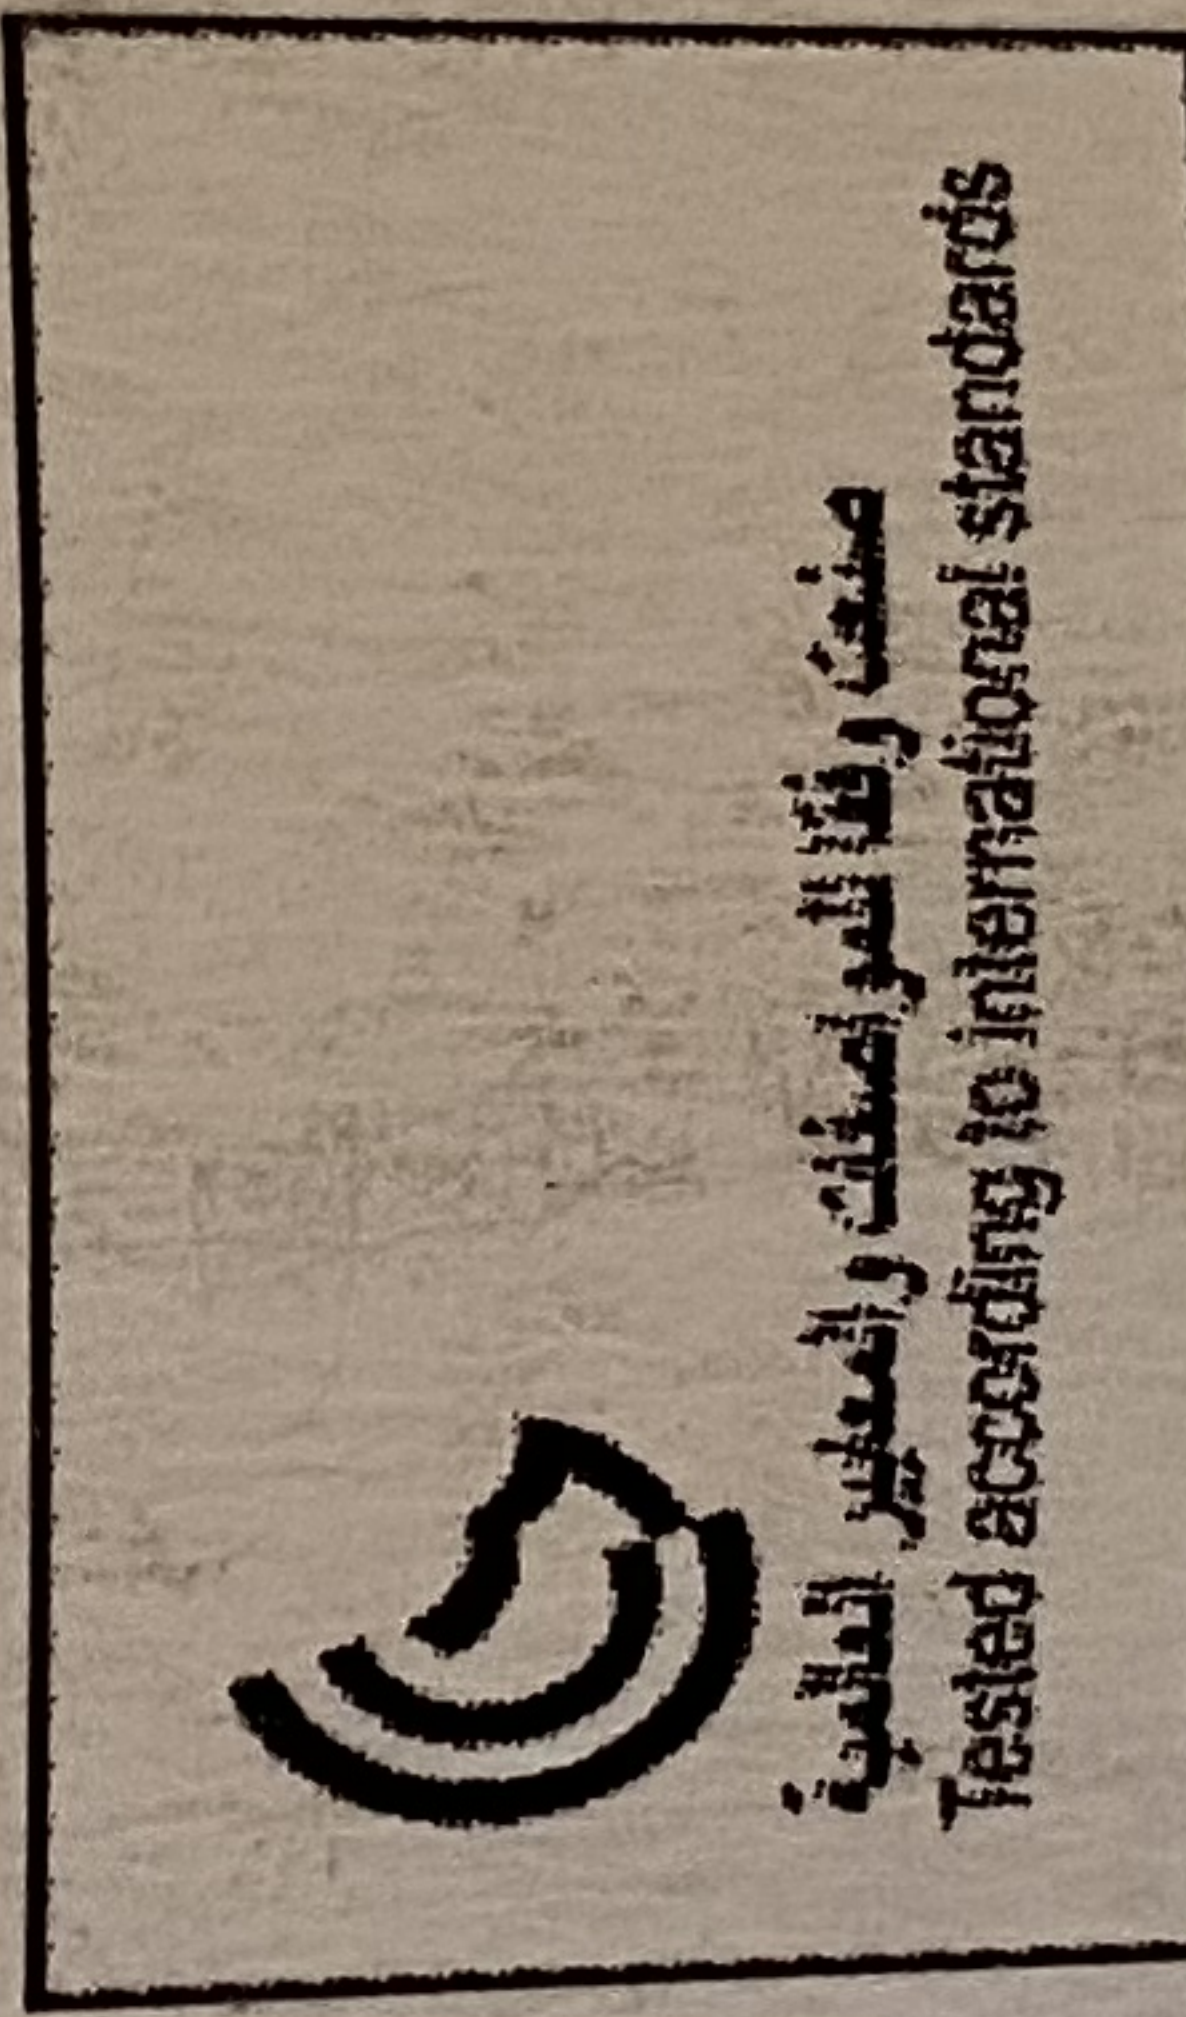 صنعت وفقا للمواصفات والمعايير العالمية
Tested according to international standards